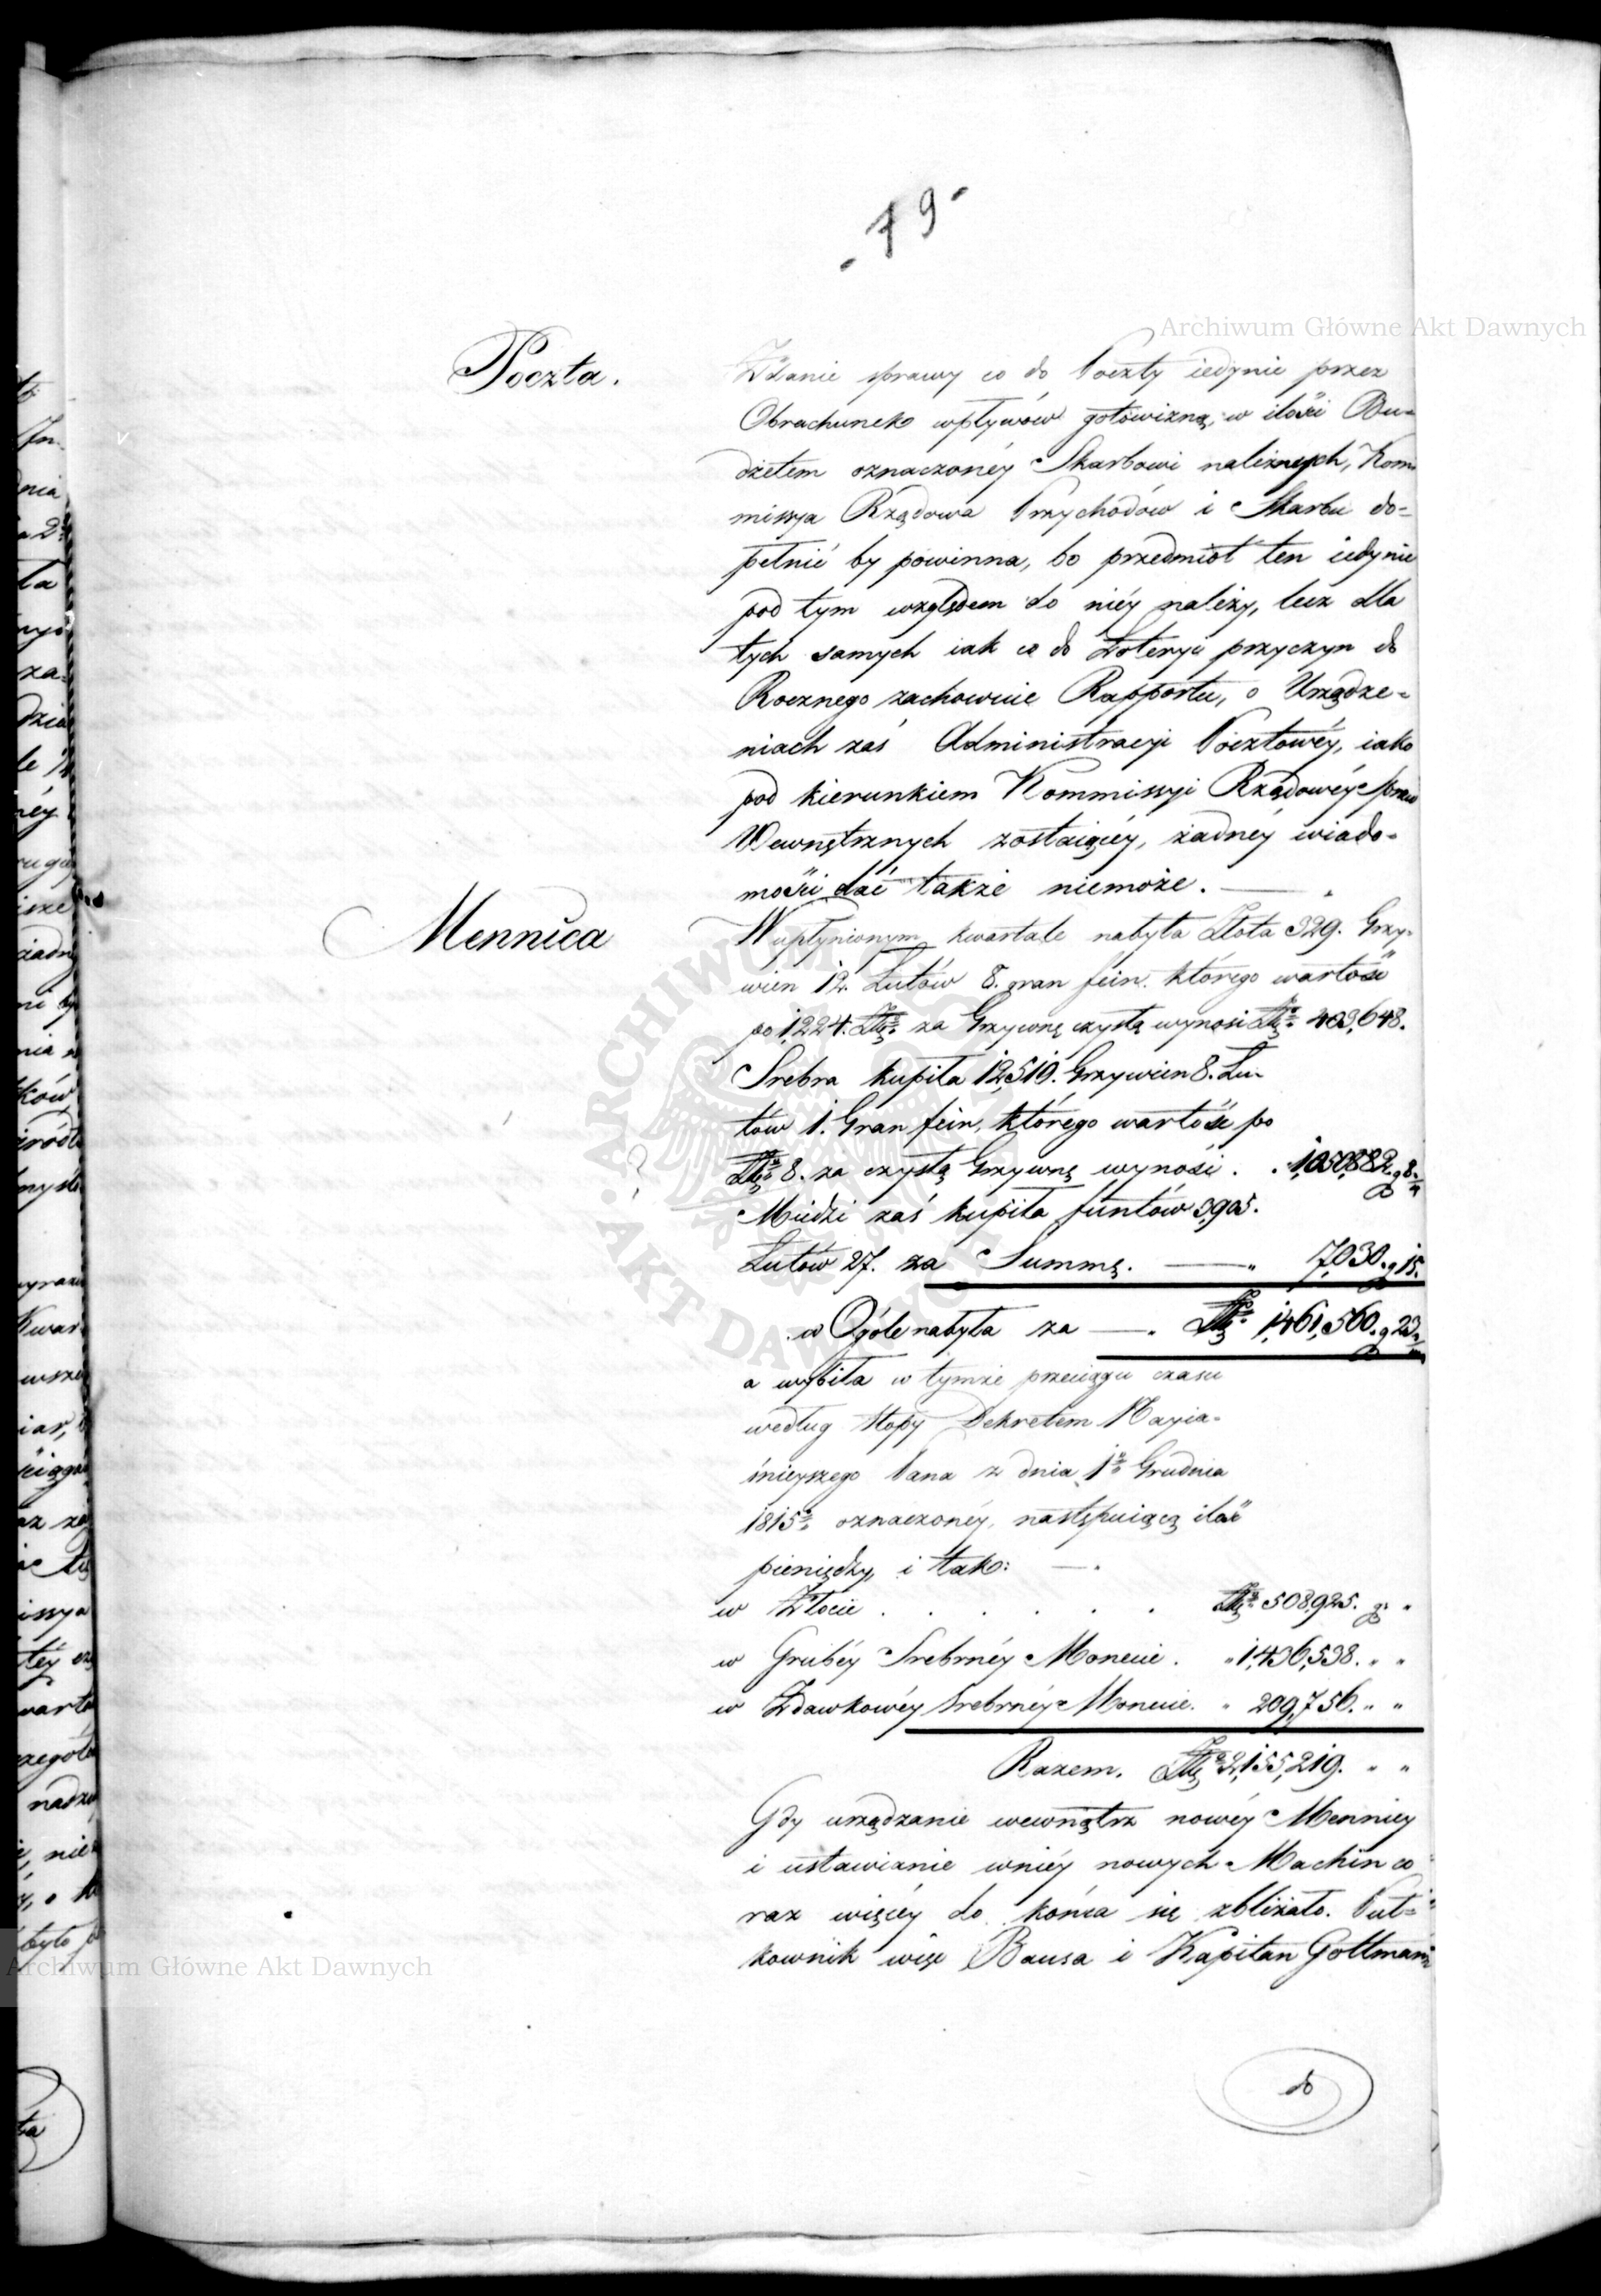 - 19 -
Archiwum Główne Akt Dawnych
Poczta.
Zdanie sprawy co do Poczty iedynie przez
Obrachunek wpływów gotowizną, w ilości Bu-
dżetem oznaczonéy Skarbowi należnych, Kom-
missya Rządowa Przychodów i Skarbu do-
pełnić by powinna, bo przedmiot ten iedynie
pod tym względem do niéy należy, lecz dla
tych samych iak co do Loteryi przyczyn do
Rocznego zachowuie Rapportu, o Urządze-
niach zaś Administracyi Pocztowéy, iako
pod kierunkiem Kommissyi Rządowéy Spraw
Wewnętrznych zostaiącéy, żadnéy wiado-
mości dać także niemoże.
Mennica
W upłynionym kwartale nabyła Złota 329. Grzy-
wien 12. Łutów 8. gran fein. którego wartość
po 1,224. Złp. za Grzywnę czystą wynosi Złp. 403,648.
Srebra kupiła 12,519. Grzywien 8. Łu-
tów 1. Gran fein, którego wartość po
Złp. 8. za czystą Grzywnę wynosi . . 1,050,882. g 8.
Miedzi zaś kupiła funtów 3,905.
Łutów 27. za Summę. 7,030. g 15.
w Ogóle nabyła za Złp. 1,461,560. g 23.
a wybiła w tymże przeciągu czasu
według Stopy Dekretem Nayia-
śnieyszego Pana z dnia 1º Grudnia
1815º oznaczonéy, następuiącą ilość
pieniędzy, i tak:
w Złocie . . . . . . Złp. 508,925. gr "
w Grubéy Srebrnéy Monecie. " 1,436,538. " "
w Zdawkowéy Srebrnéy Monecie. " 209,756. " "
Razem. Złp 2,155,219. " "
Gdy urządzanie wewnątrz nowéy Mennicy
i ustawianie wniéy nowych Machin co
raz więcéy do końca się zbliżało. Puł-
kownik więc Bausa i Kapitan Gottmann
do
Archiwum Główne Akt Dawnych
ARCHIWUM GŁÓWNE AKT DAWNYCH